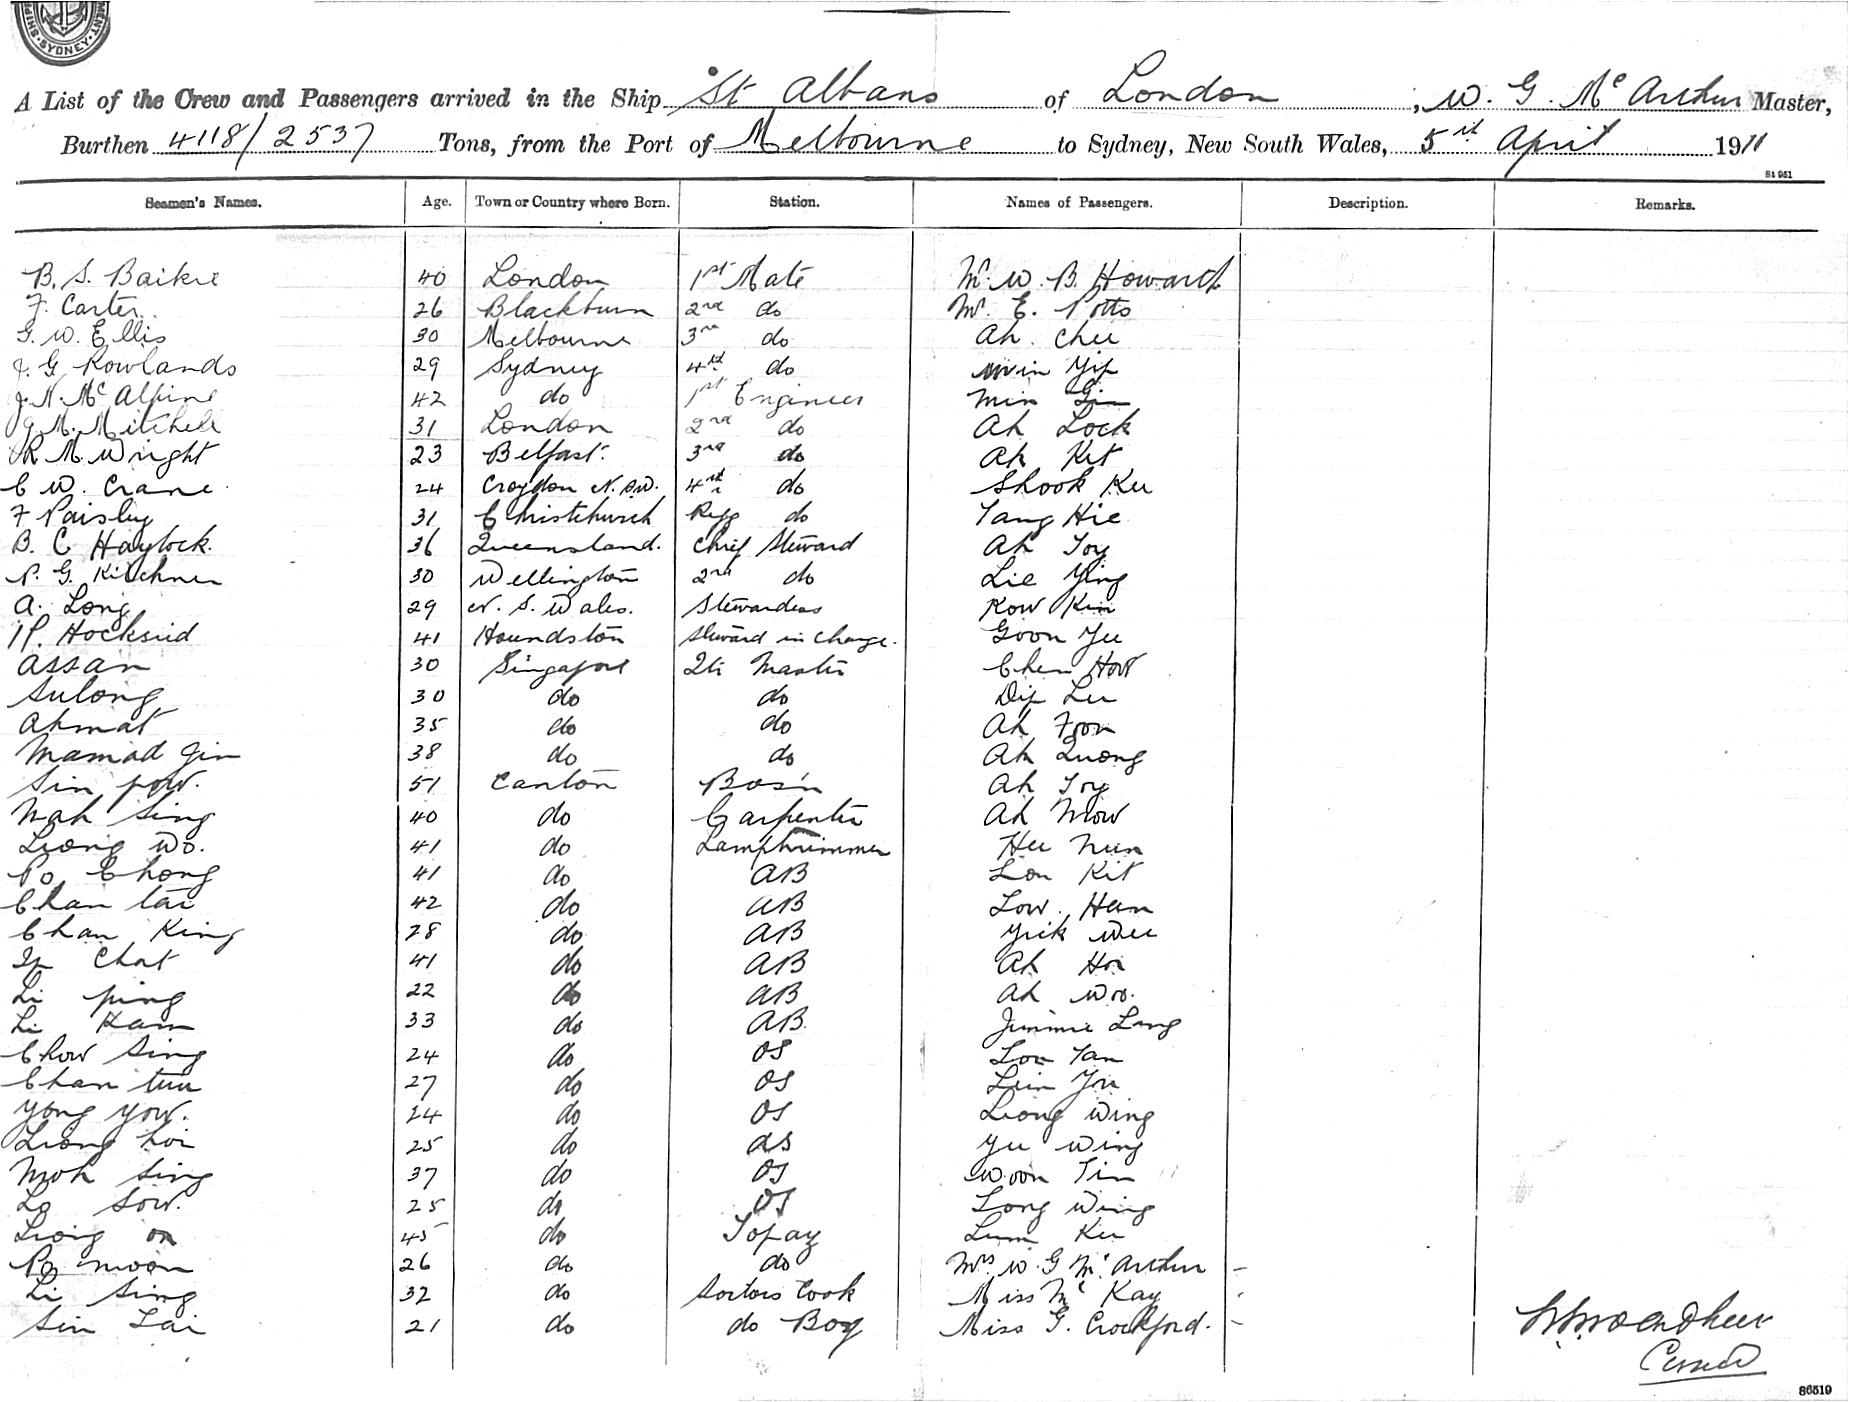 SYDNEY
A List of the Crew and Passengers arrived in the Ship St Albans of London, W. G. McArthur Master,
Burthen 4118/2537 Tons, from the Port of Melbourne to Sydney, New South Wales, 5th April 1911
St 951
Seamen's Names. Age. Town or Country where Born. Station. Names of Passengers. Description. Remarks.
B. S. Baikie 40 London 1st Mate Mr. W. B. Howard
F. Carter 26 Blackburn 2nd do Mr. E. Potts
G. W. Ellis 30 Melbourne 3rd do Ah Chee
J. G. Rowlands 29 Sydney 4th do Yip
J. N. McAlpine 42 do 1st Engineer Min Gin
J. M. Mitchell 31 London 2nd do Ah Lock
R. M. Wright 23 Belfast 3rd do Ah Kit
C W. Crane 24 Croydon N.S.W. 4th do Shook Kee
F Paisley 31 Christchurch Refg do Tang Hie
B. C Haylock. 36 Queensland. Chief Steward Ah Toy
P. G. Kirchner 30 Wellington 2nd do Lie Ying
A. Long 29 N. S. Wales. Stewardess Kow Kin
41 Houndston Steward in charge. Goon Yee
Assan 30 Singapore Qtr Master Chen How
Sulong 30 do do Dip Lee
Ahmat 35 do do Ah Foon
Mamad Jin 38 do do Ah Quong
Sin pow. 51 Canton Bos'n Ah Toy
Mah Sing 40 do Carpenter Ah Mow
Leong Wo. 41 do Lamptrimmer Hee Nun
Po Chong 41 do AB Lou Kit
Chan tai 42 do AB Low Hun
Chan King 28 do AB Yick Wee
Ip Chat 41 do AB Ah Hoi
Li ping 22 do AB Ah Woo.
Li Kam 33 do AB. Jimmie Lang
Chow Sing 24 do OS Lou Tan
Chan tuu 27 do OS Lun You
Yong Yow. 24 do OS Leong Wing
Leong hoi 25 do OS Yee Wing
Moh Sing 37 do OS Woon Tin
Lo Sow. 25 do OS Long Wing
Leong on 45 do Topaz Lum Kee
Po moon 26 do do Mrs. W. G McArthur –
Li Sing 32 do Sailors Cook Miss McKay
Sin Tai 21 do do Boy Miss G. Crockford. –
86519